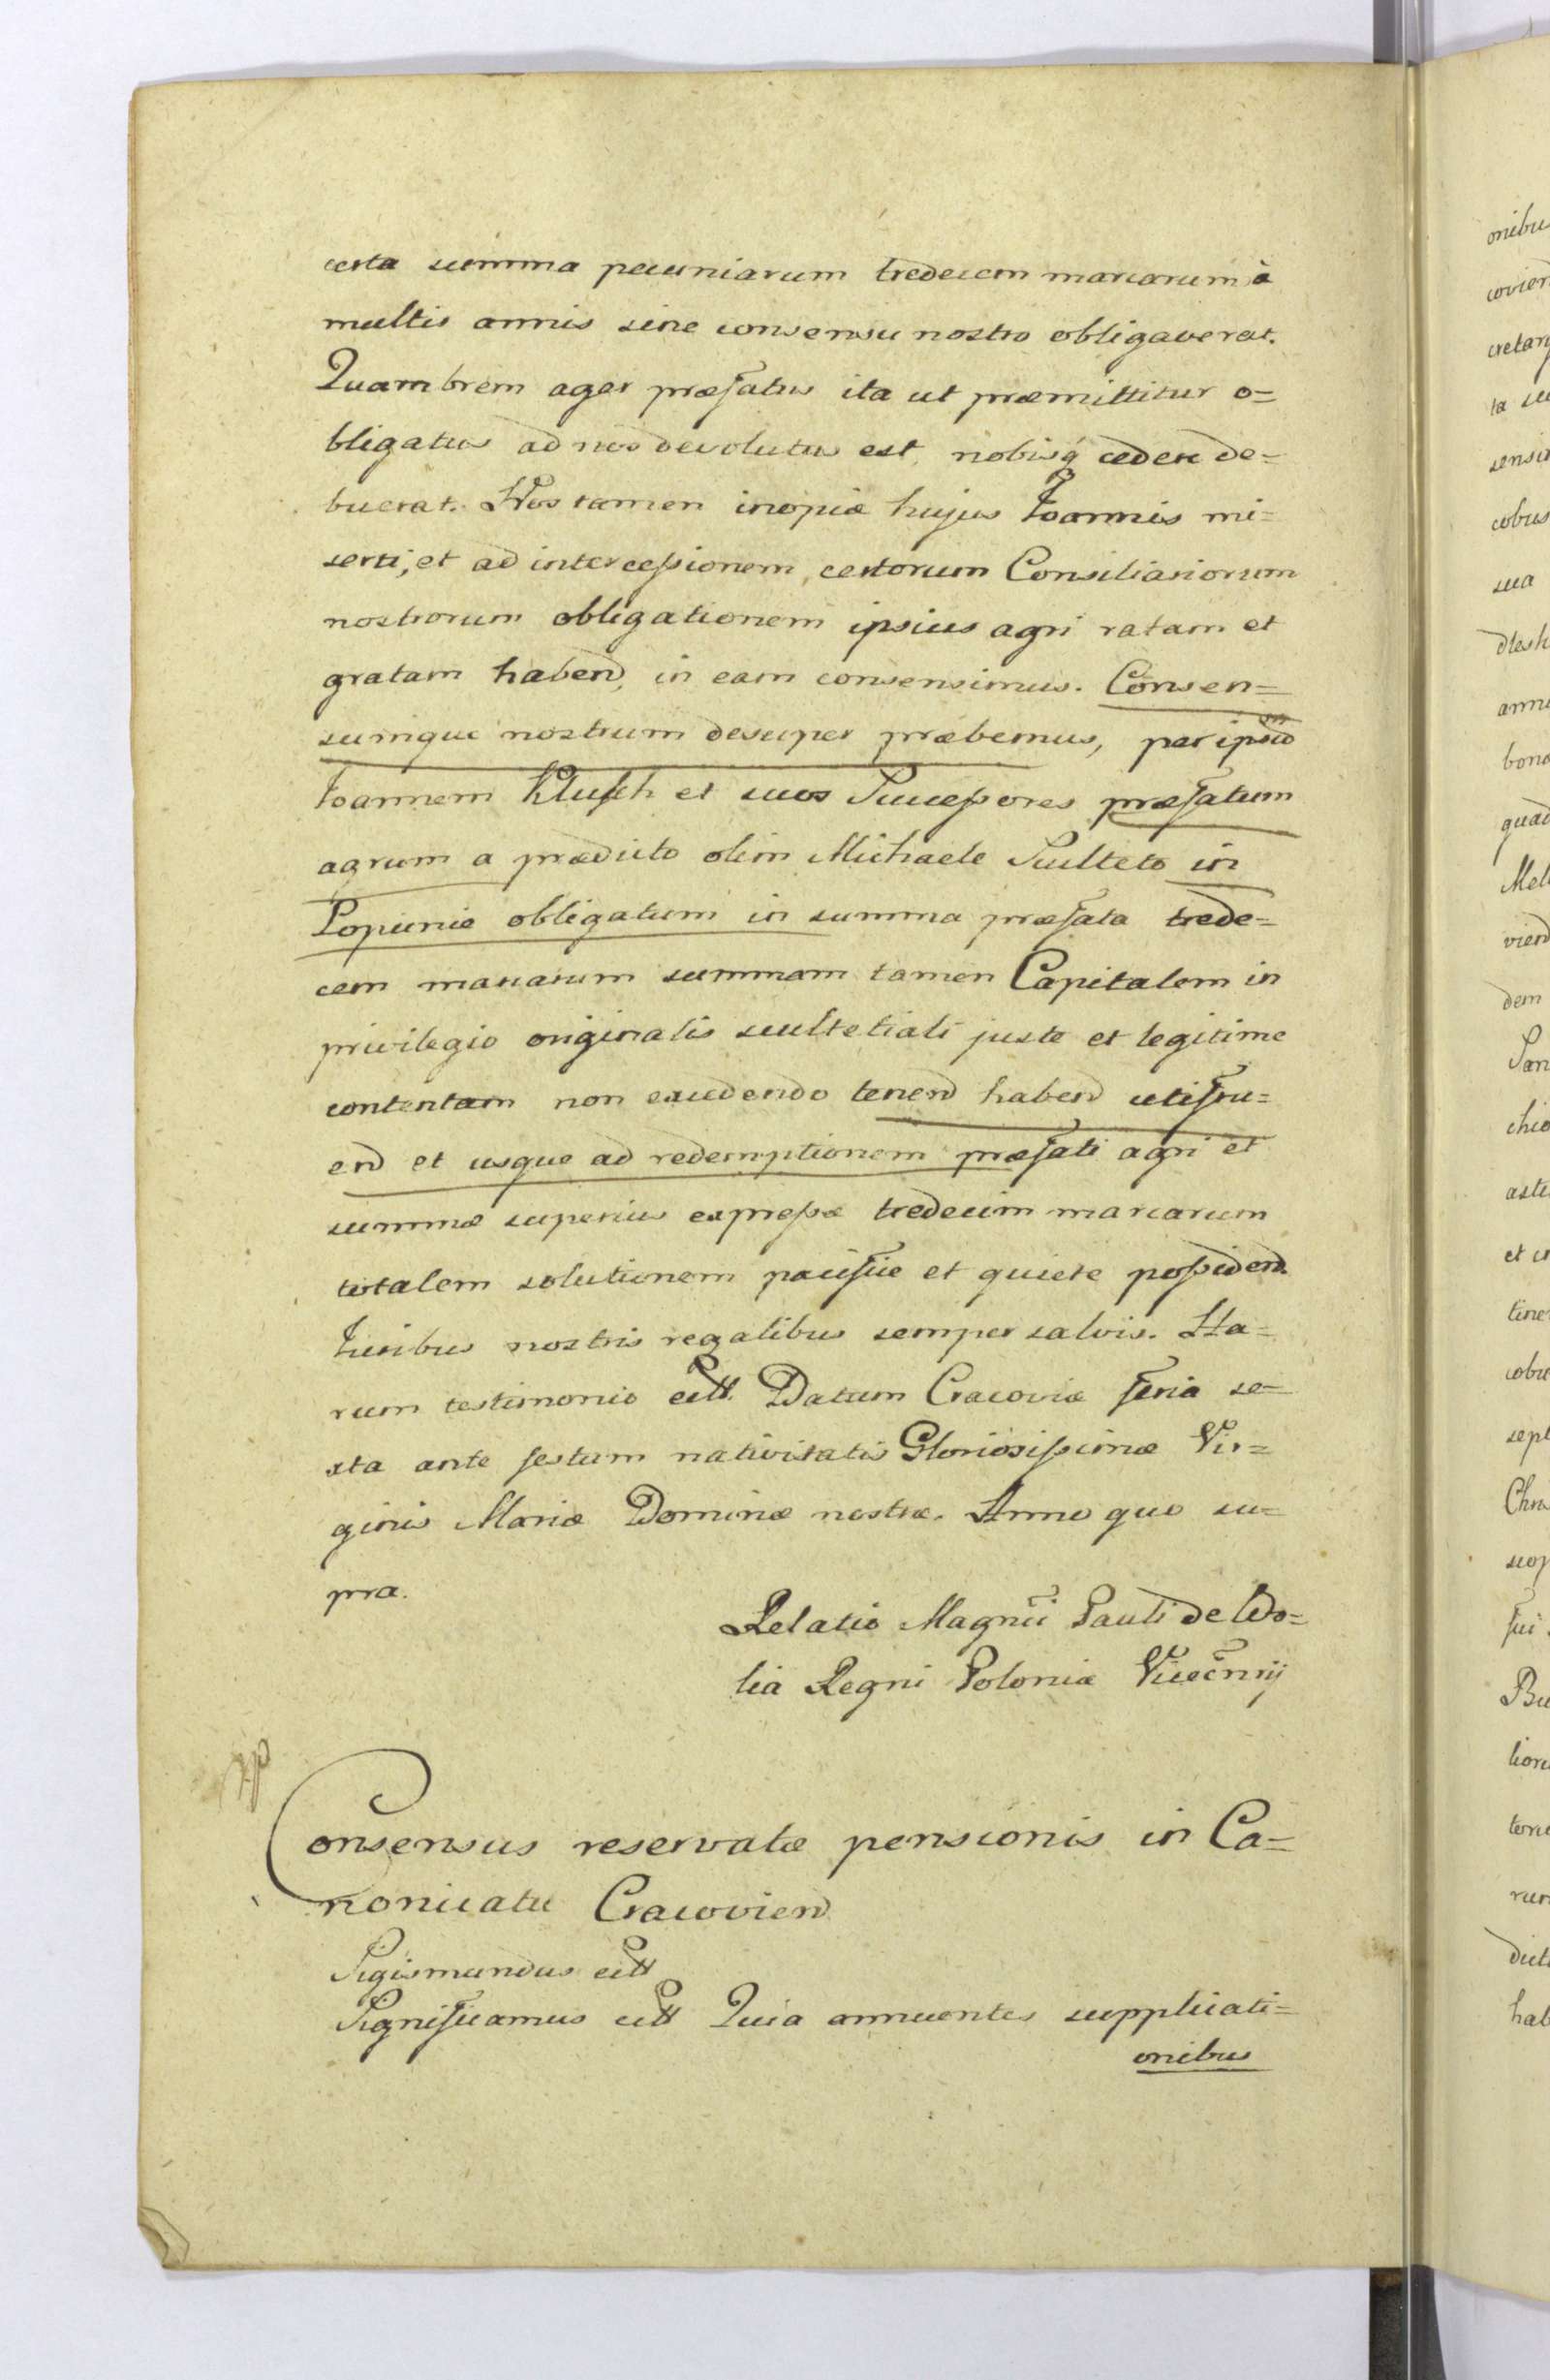 certa summa pecuniarum tredecem marcarum à
multis annis sine consensu nostro obligaverat.
Quambrem ager præfatus ita ut præmittitur o=
bligatus ad nos devolutus est, nobisq cedere de=
buerat. Nos tamen inopiæ hujus Joannis mi=
serti, et ad intercessionem, certorum Consiliariorum
nostrorum obligationem ipsius agri ratam et
gratam habend, in eam consensimus. Consen=
sumque nostrum desuper præbemus, per ipsum
Joannem Klusch et suos Successores præfatum
agrum a prædicto olim Michaele Sculteto in
Popiunie obligatum in summa præfata trede=
cem marcarum summam tamen Capitalem in
privilegio originalis scultetiali juste et legitime
contentam non excedendo tenend habend utifru=
end et usque ad redemptionem præfati agri et
summæ superius expressæ tredecim marcarum
totalem solutionem pacifice et quiete possidend.
Juribus nostris regalibus semper salvis. Ha=
rum testimonio ett. Datum Cracoviæ feria se=
xta ante festum nativitatis Gloriosissimæ Vir=
ginis Mariæ Dominæ nostræ. Anno quo su=
pra.
Relatio Magnci Pauli de Wo=
lia Regni Poloniæ Vicecnrij
Consensus reservatæ pensionis in Ca=
nonicatu Cracovien
Sigismundus ett
Significamus ett Quia annuentes supplicati=
onibus